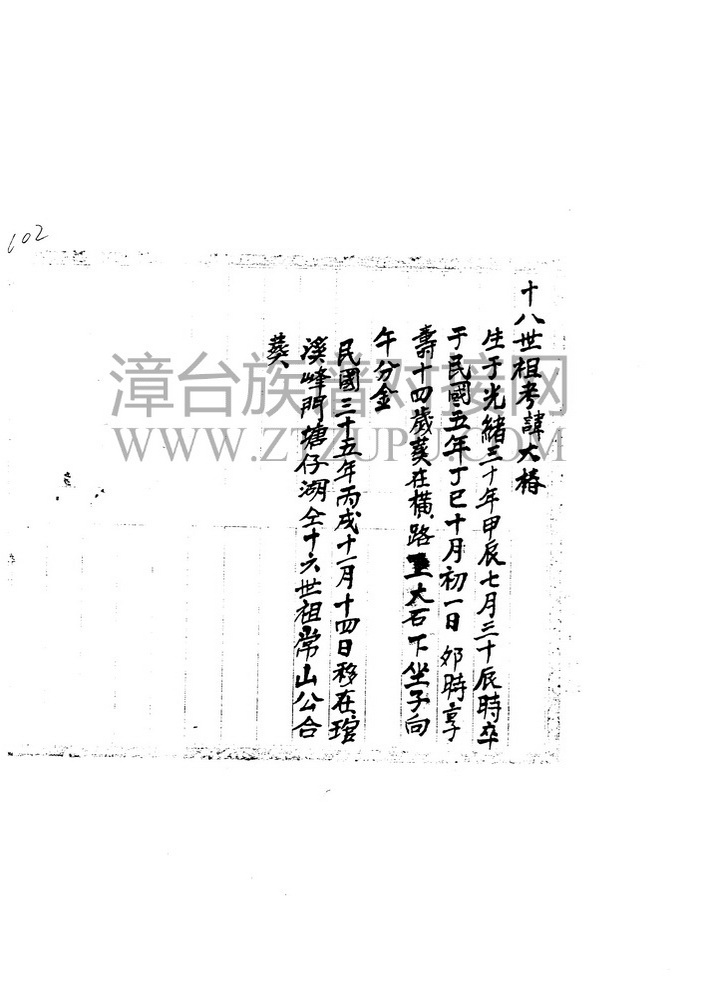 102
十八世祖考諱大椿
生于光緒三十年甲辰七月三十辰時卒
于民國五年丁巳十月初一日卯時享
壽十四歲葬在橫路 大石下坐子向
午分金
民國三十五年丙戌十一月十四日移在琯
溪峰門塘仔湖仝十六世祖常山公合
葬
漳台族谱对接网
WWW.ZTZUPU.COM